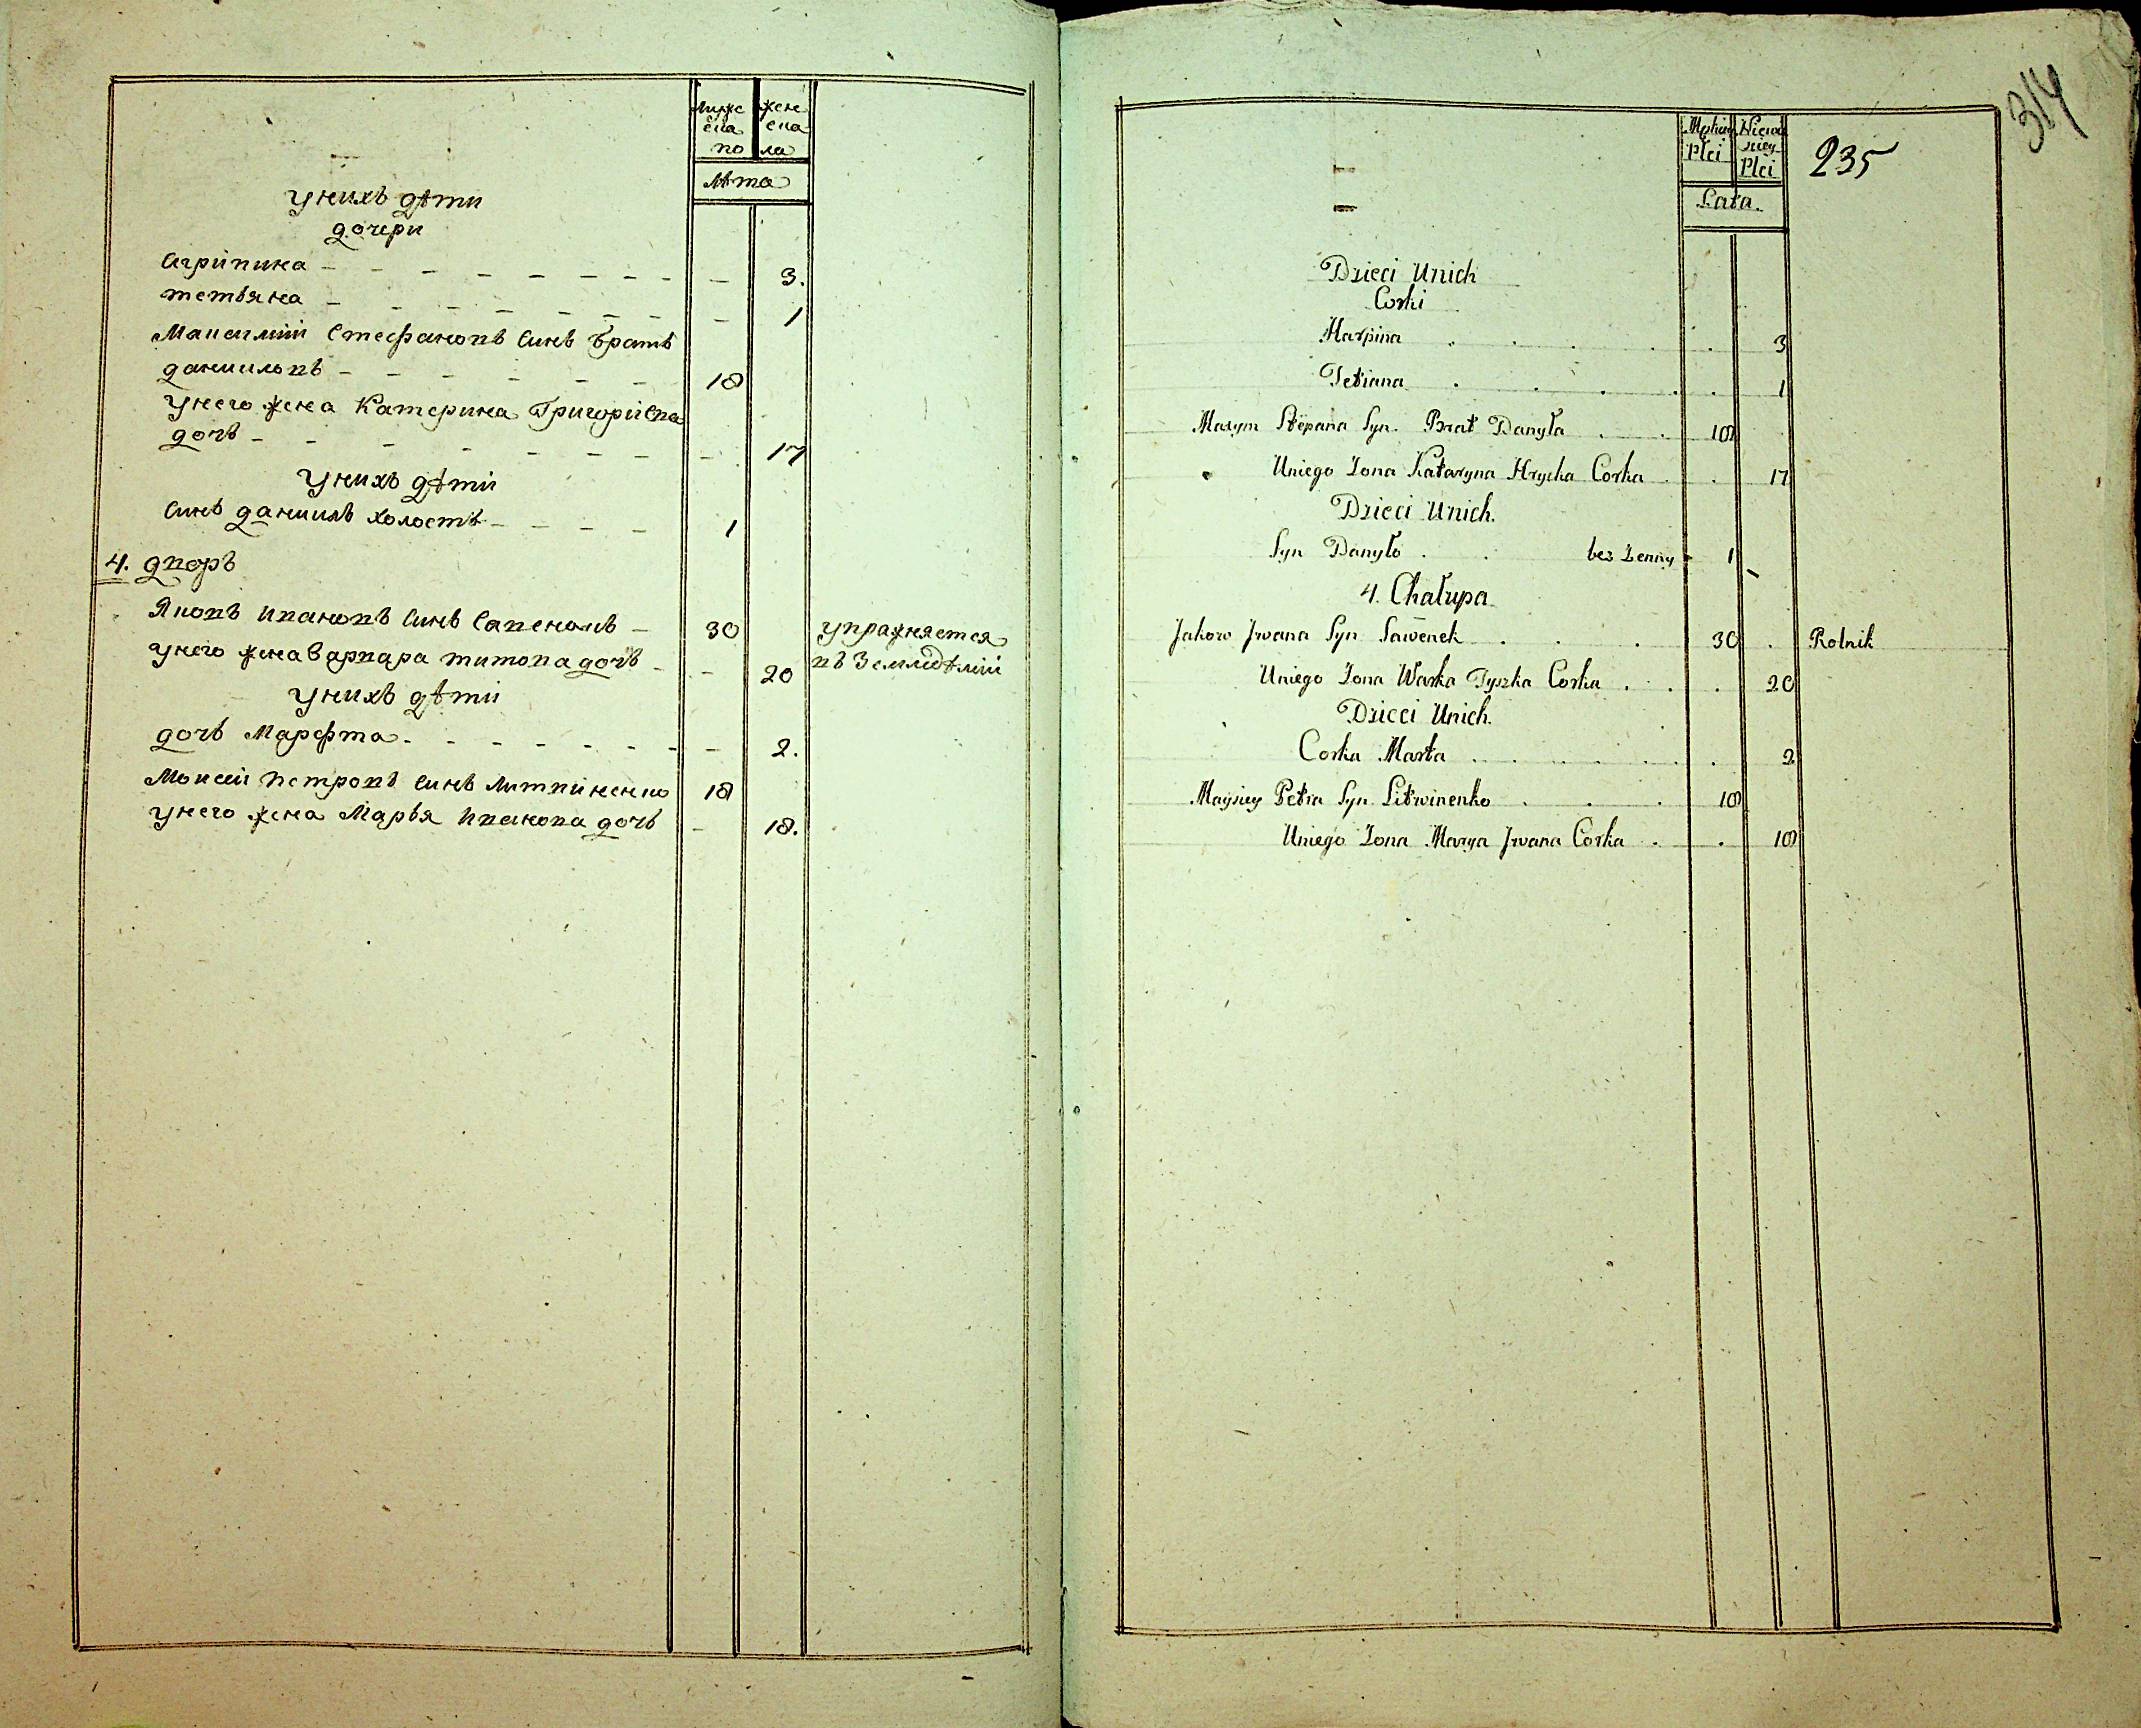 Муже жен
ска ска
по ла
Лѣта
У нихъ дѣти
дочери
Агрипина - - - - - - - - 3.
тетьяна - - - - - - - - 1
Максимъ Стефановъ Синъ братъ
даниловъ - - - - - - 18
У него жена Катерина Григориева
дочь - - - - - - - - 17
У нихъ дѣти
Синъ даниилъ холостъ - - - - 1
4. дворъ
Яковъ ивановъ Синъ Савенокъ - 30 упражняется
У него жена Варвара титова дочь - - 20 въ Земледѣлии
У нихъ дѣти
дочь Марефта - - - - - - - - 2.
Моисей петровъ Синъ Литвиненко 18
У него жена Марья иванова дочь - 18.
314
235
Męskiey Niewiasciey
Płci Płci
Lata.
Dzieci Unich
Corki
Harpina . . . . . 3
Tetiana . . . . . 1
Maxym Stepana Syn. Brat Danyła . . 18
Uniego Żona Kataryna Hrycka Corka . . 17
Dzieci Unich.
Syn Danyło . . bez Żenny 1
4. Chałupa
Jakow Jwana Syn Sawenek . . . 30 . Rolnik
Uniego Żona Warka Tyszka Corka . . . 20
Dzieci Unich.
Corka Marta . . . . . . 2
Maysiey Petra Syn Litwinenko . . . 18
Uniego Żona Marya Jwana Corka . . 18